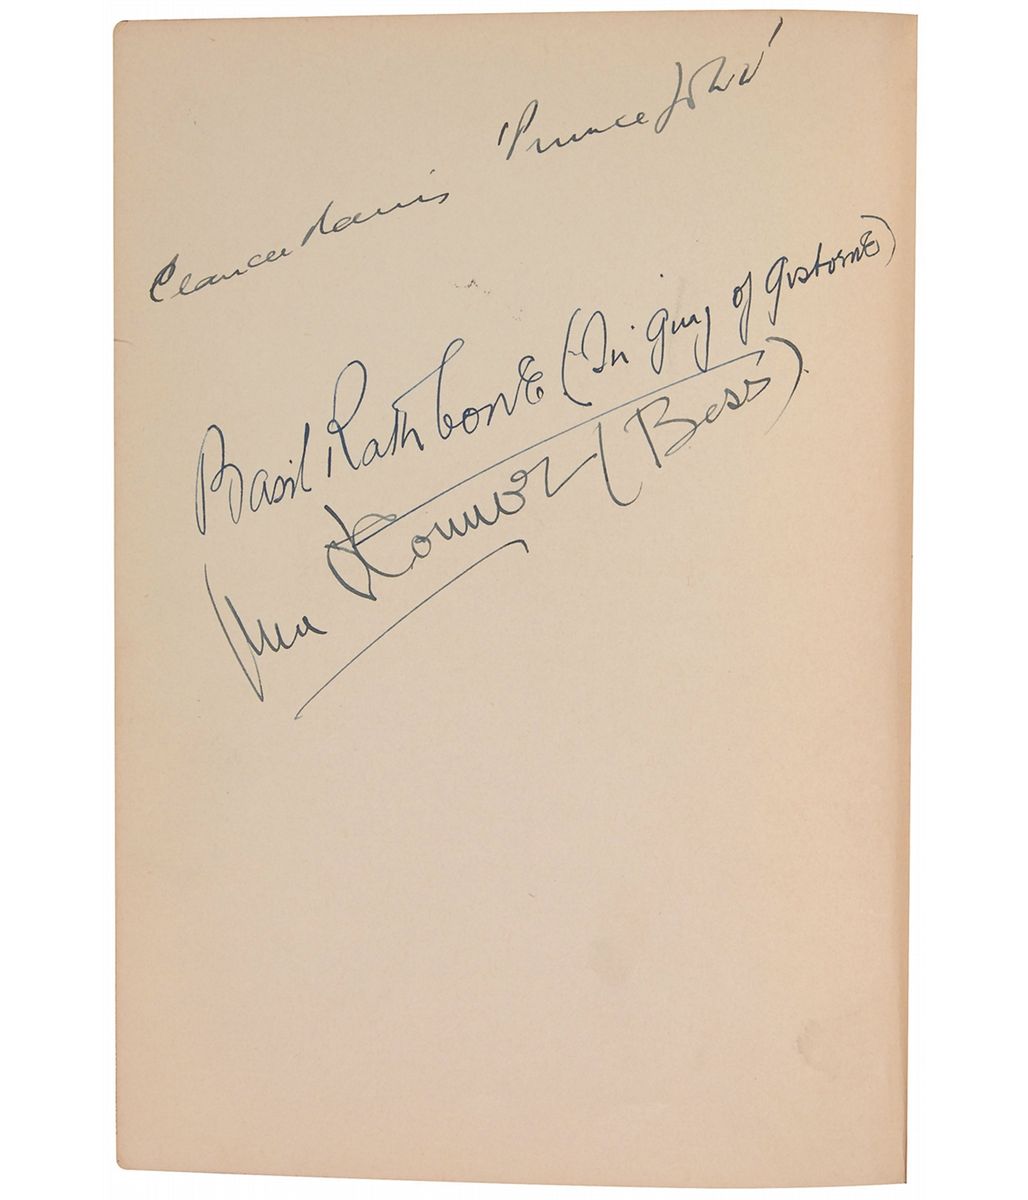 Claude Rains 'Prince John'
Basil Rathbone (Sir Guy of Gisborne)
Una O'Connor (Bess).